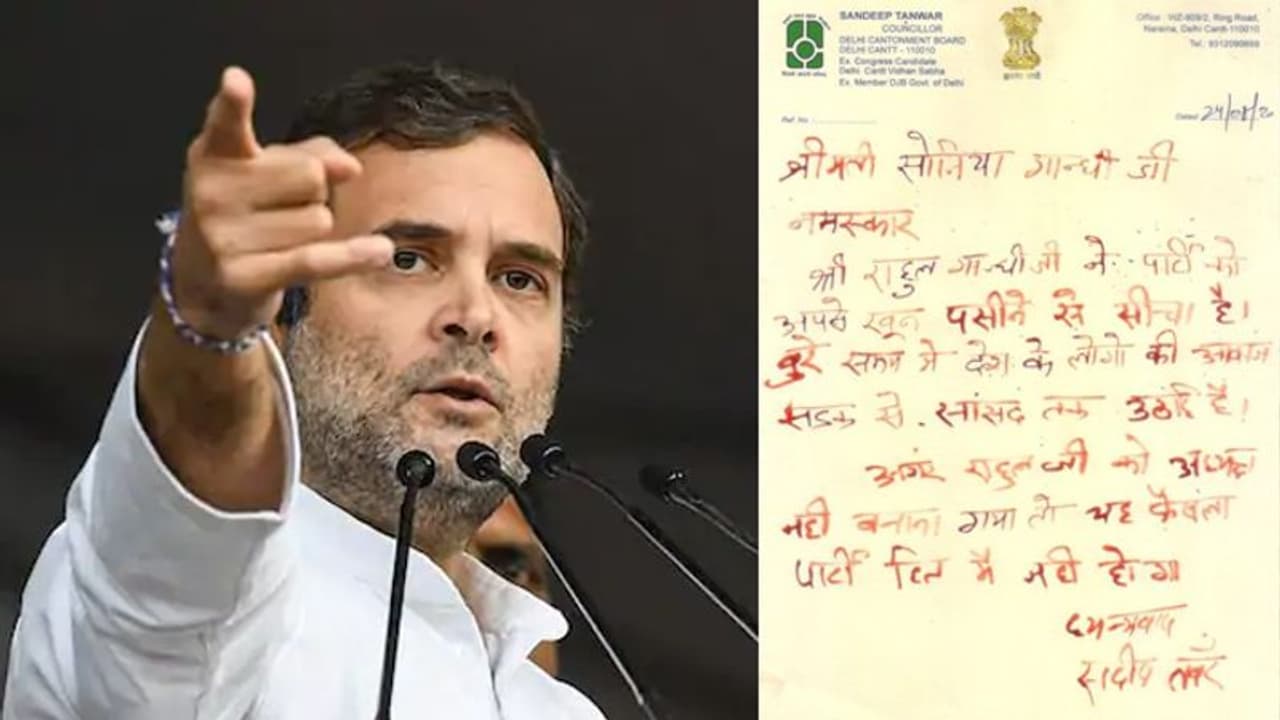 SANDEEP TANWAR
COUNCILLOR
DELHI CANTONMENT BOARD
DELHI CANTT - 110010
Ex. Congress Candidate
Delhi Cantt Vidhan Sabha
Ex. Member DJB Govt. of Delhi
Office : WZ-909/2, Ring Road,
Naraina, Delhi Cantt-110010
Tel.:
Ref. No.
Dated
श्रीमती सोनिया गान्धी जी
नमस्कार
श्री राहुल गान्धी जी ने पार्टी को
अपने खून पसीने से सीचा है।
बुरे समय मे देश के लोगो की आवाज
सडक से सांसद तक उठाई है।
अगर राहुल जी को अध्यक्ष
नही बनाया गया तो यह फैसला
पार्टी हित मै नही होगा
धन्यवाद
संदीप तवँर